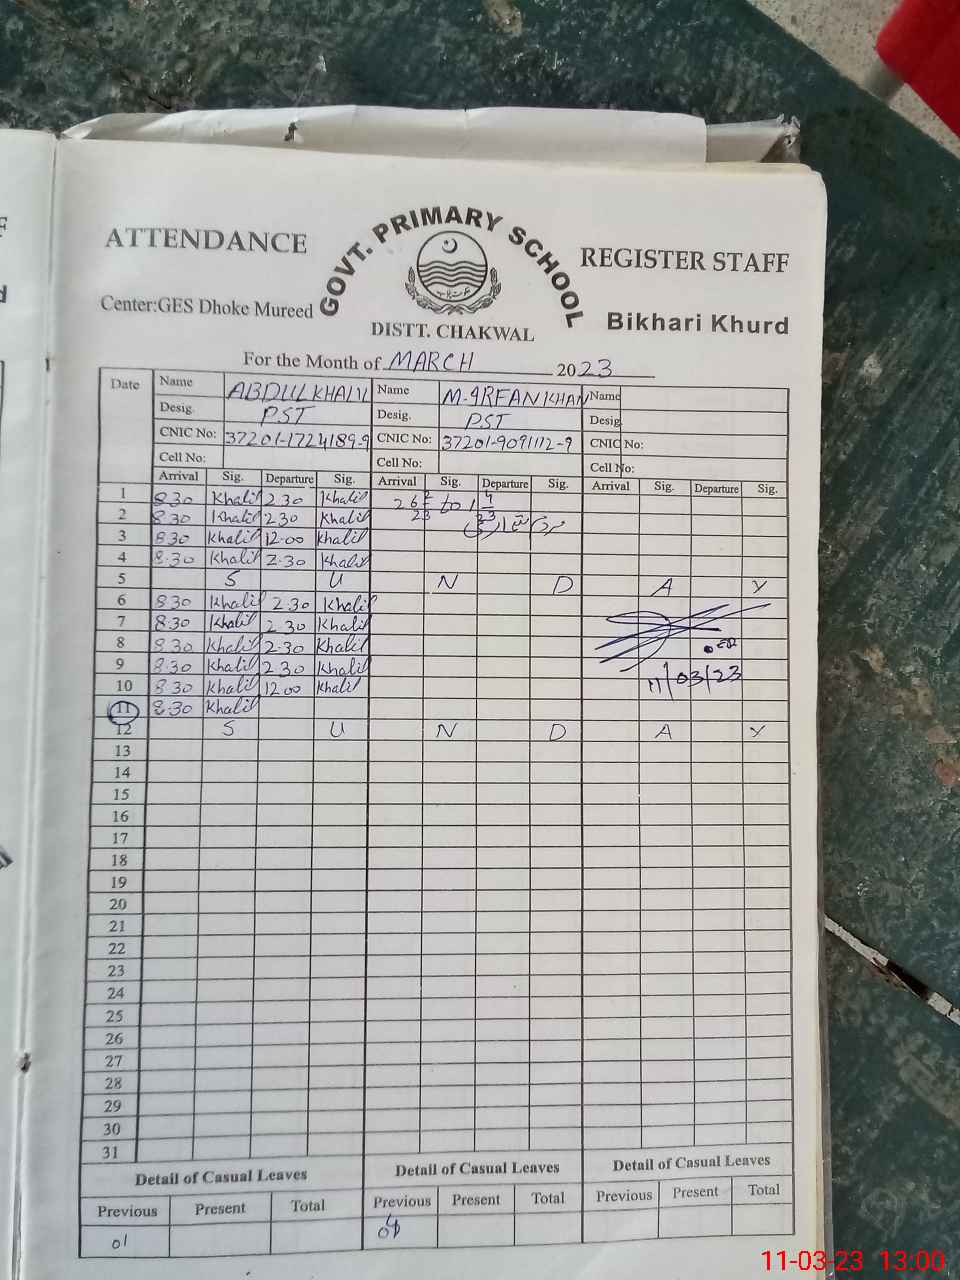 GOVT. PRIMARY SCHOOL
ATTENDANCE REGISTER STAFF
Center:GES Dhoke Mureed
DISTT. CHAKWAL
Bikhari Khurd
For the Month of MARCH 2023
Date Name ABDUL KHALIL Name M. IRFAN KHAN Name
Desig. PST Desig. PST Desig.
CNIC No: 37201-1724189-9 CNIC No: 37201-9091112-9 CNIC No:
Cell No: Cell No: Cell No:
Arrival Sig. Departure Sig. Arrival Sig. Departure Sig. Arrival Sig. Departure Sig.
1 8 30 Khalil 2 30 Khalil 26 2/23 to 1 4/23
2 8 30 Khalil 2 30 Khalil
3 8 30 Khalil 12.00 Khalil
4 8.30 Khalil 2.30 Khalil
5 S U N D A Y
6 8 30 Khalil 2.30 Khalil
7 8.30 Khalil 2 30 Khalil
8 8 30 Khalil 2.30 Khalil
9 8.30 Khalil 2 30 Khalil
10 8 30 Khalil 12 00 Khalil 11/03/23
11 8.30 Khalil
12 S U N D A Y
13
14
15
16
17
18
19
20
21
22
23
24
25
26
27
28
29
30
31
Detail of Casual Leaves Detail of Casual Leaves Detail of Casual Leaves
Previous Present Total Previous Present Total Previous Present Total
01
11-03-23 13:00